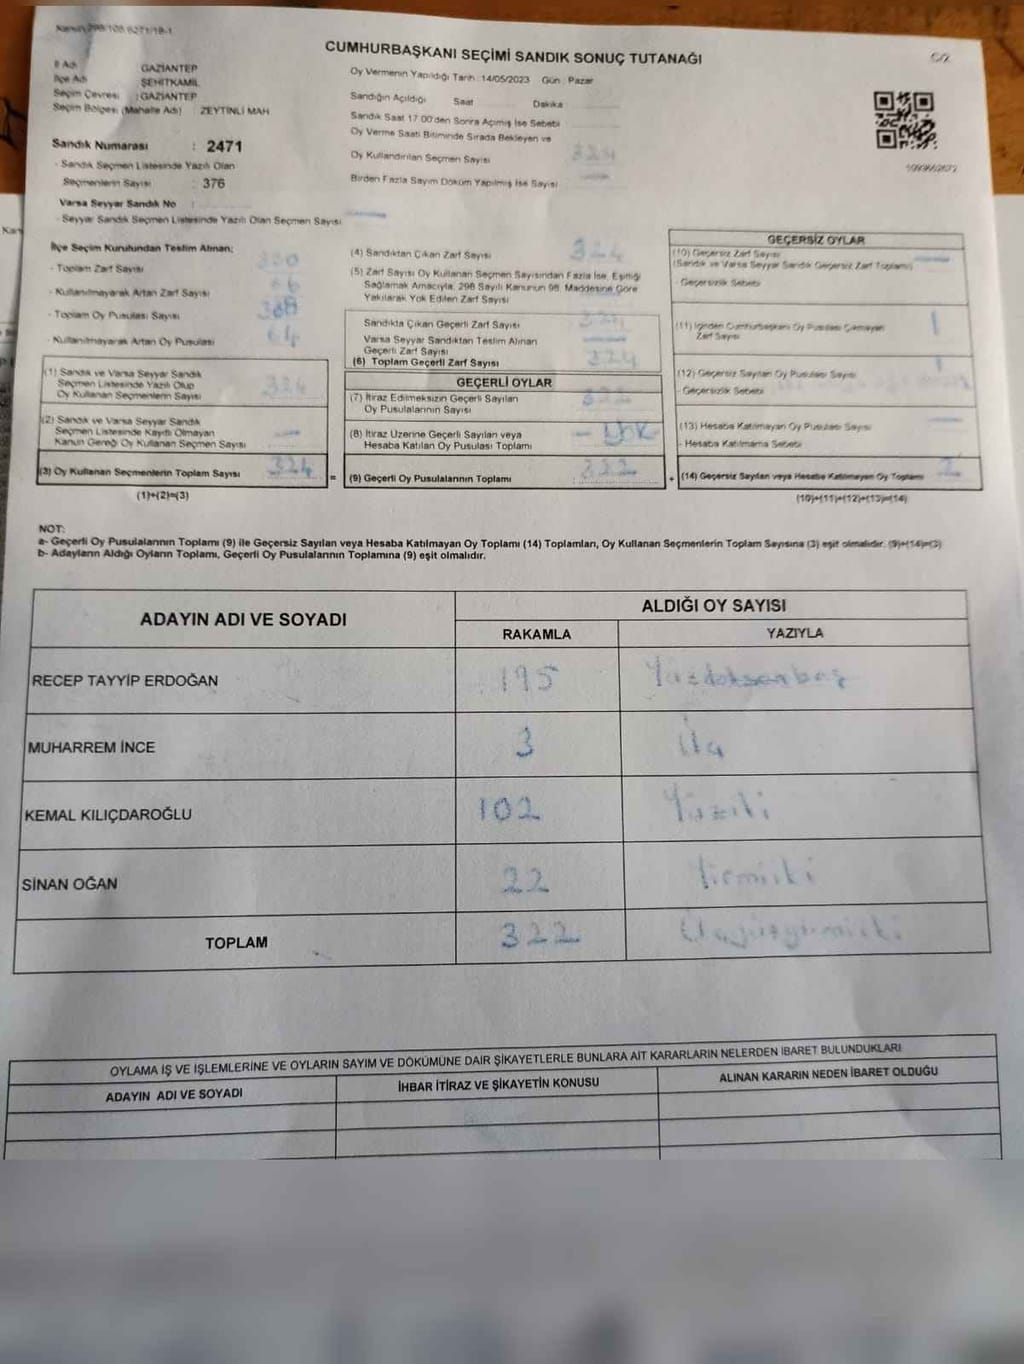 Kanun 298/105 6271/19-1
CUMHURBAŞKANI SEÇİMİ SANDIK SONUÇ TUTANAĞI
İl Adı GAZİANTEP
İlçe Adı ŞEHİTKAMİL
Seçim Çevresi : GAZİANTEP
Seçim Bölgesi (Mahalle Adı) : ZEYTİNLİ MAH
Sandık Numarası : 2471
- Sandık Seçmen Listesinde Yazılı Olan
Seçmenlerin Sayısı : 376
Varsa Seyyar Sandık No :
- Seyyar Sandık Seçmen Listesinde Yazılı Olan Seçmen Sayısı
Oy Vermenin Yapıldığı Tarih : 14/05/2023 Gün : Pazar
Sandığın Açıldığı Saat Dakika
Sandık Saat 17.00'den Sonra Açılmış İse Sebebi
Oy Verme Saati Bitiminde Sırada Bekleyen ve
Oy Kullandırılan Seçmen Sayısı 324
Birden Fazla Sayım Döküm Yapılmış İse Sayısı
İlçe Seçim Kurulundan Teslim Alınan;
- Toplam Zarf Sayısı
- Kullanılmayarak Artan Zarf Sayısı 66
- Toplam Oy Pusulası Sayısı
- Kullanılmayarak Artan Oy Pusulası 64
(1) Sandık ve Varsa Seyyar Sandık
Seçmen Listesinde Yazılı Olup
Oy Kullanan Seçmenlerin Sayısı 324
(2) Sandık ve Varsa Seyyar Sandık
Seçmen Listesinde Kayıtlı Olmayan
Kanun Gereği Oy Kullanan Seçmen Sayısı
(3) Oy Kullanan Seçmenlerin Toplam Sayısı 324
(1)+(2)=(3)
(4) Sandıktan Çıkan Zarf Sayısı 324
(5) Zarf Sayısı Oy Kullanan Seçmen Sayısından Fazla İse, Eşitliği
Sağlamak Amacıyla, 298 Sayılı Kanunun 98. Maddesine Göre
Yakılarak Yok Edilen Zarf Sayısı
Sandıkta Çıkan Geçerli Zarf Sayısı 324
Varsa Seyyar Sandıktan Teslim Alınan
Geçerli Zarf Sayısı
(6) Toplam Geçerli Zarf Sayısı 324
GEÇERLİ OYLAR
(7) İtiraz Edilmeksizin Geçerli Sayılan
Oy Pusulalarının Sayısı 322
(8) İtiraz Üzerine Geçerli Sayılan veya
Hesaba Katılan Oy Pusulası Toplamı - YOK
= (9) Geçerli Oy Pusulalarının Toplamı 322
GEÇERSİZ OYLAR
(10) Geçersiz Zarf Sayısı
(Sandık ve Varsa Seyyar Sandık Geçersiz Zarf Toplamı)
- Geçersizlik Sebebi
(11) İçinden Cumhurbaşkanı Oy Pusulası Çıkmayan
Zarf Sayısı 1
(12) Geçersiz Sayılan Oy Pusulası Sayısı 1
- Geçersizlik Sebebi
(13) Hesaba Katılmayan Oy Pusulası Sayısı
- Hesaba Katılmama Sebebi
+ (14) Geçersiz Sayılan veya Hesaba Katılmayan Oy Toplamı 2
(10)+(11)+(12)+(13)=(14)
NOT:
a- Geçerli Oy Pusulalarının Toplamı (9) ile Geçersiz Sayılan veya Hesaba Katılmayan Oy Toplamı (14) Toplamları, Oy Kullanan Seçmenlerin Toplam Sayısına (3) eşit olmalıdır. (9)+(14)=(3)
b- Adayların Aldığı Oyların Toplamı, Geçerli Oy Pusulalarının Toplamına (9) eşit olmalıdır.
ADAYIN ADI VE SOYADI ALDIĞI OY SAYISI
RAKAMLA YAZIYLA
RECEP TAYYİP ERDOĞAN 195 Yüzdoksanbeş
MUHARREM İNCE 3 Üç
KEMAL KILIÇDAROĞLU 102 Yüziki
SİNAN OĞAN 22 Yirmiiki
TOPLAM 322 Üçyüzyirmiiki
OYLAMA İŞ VE İŞLEMLERİNE VE OYLARIN SAYIM VE DÖKÜMÜNE DAİR ŞİKAYETLERLE BUNLARA AİT KARARLARIN NELERDEN İBARET BULUNDUKLARI
ADAYIN ADI VE SOYADI İHBAR İTİRAZ VE ŞİKAYETİN KONUSU ALINAN KARARIN NEDEN İBARET OLDUĞU